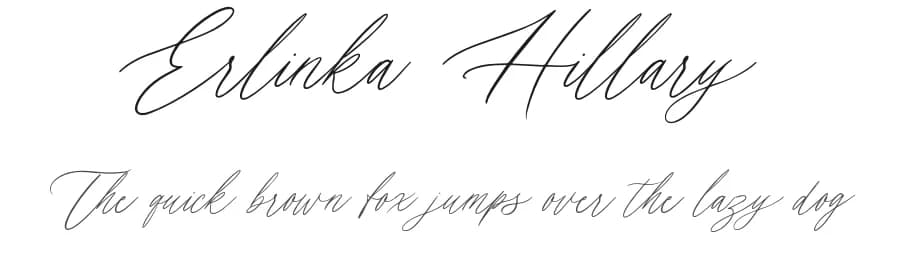 Erlinka Hillary
The quick brown fox jumps over the lazy dog